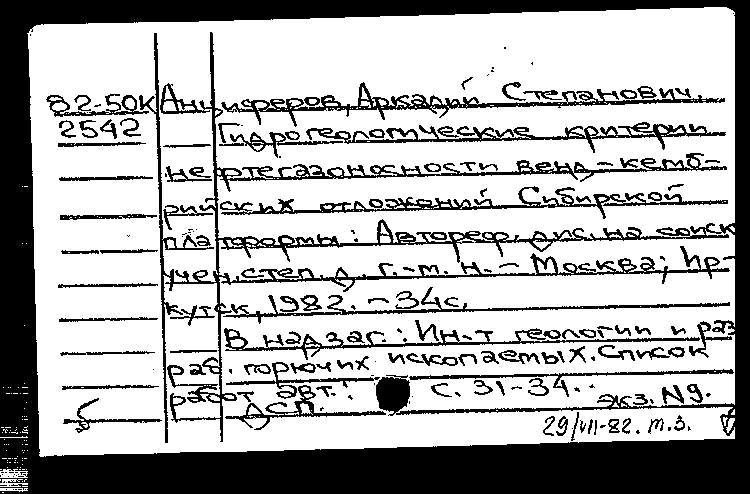 82-50К Анциферов, Аркадий Степанович.
2542 Гидрогеологические критерии
нефтегазоносности венд-кемб-
рийских отложений Сибирской
платформы: Автореф. дис. на соиск
учен. степ. д. г.-м. н. - Москва; Ир-
кутск, 1982. - 34с.
В надзаг.: Ин-т геологии и разз
раб. горючих ископаемых. Список
работ авт.: с. 31-34..
ДСП. экз. N9.
б 29/VII-82. т.з.